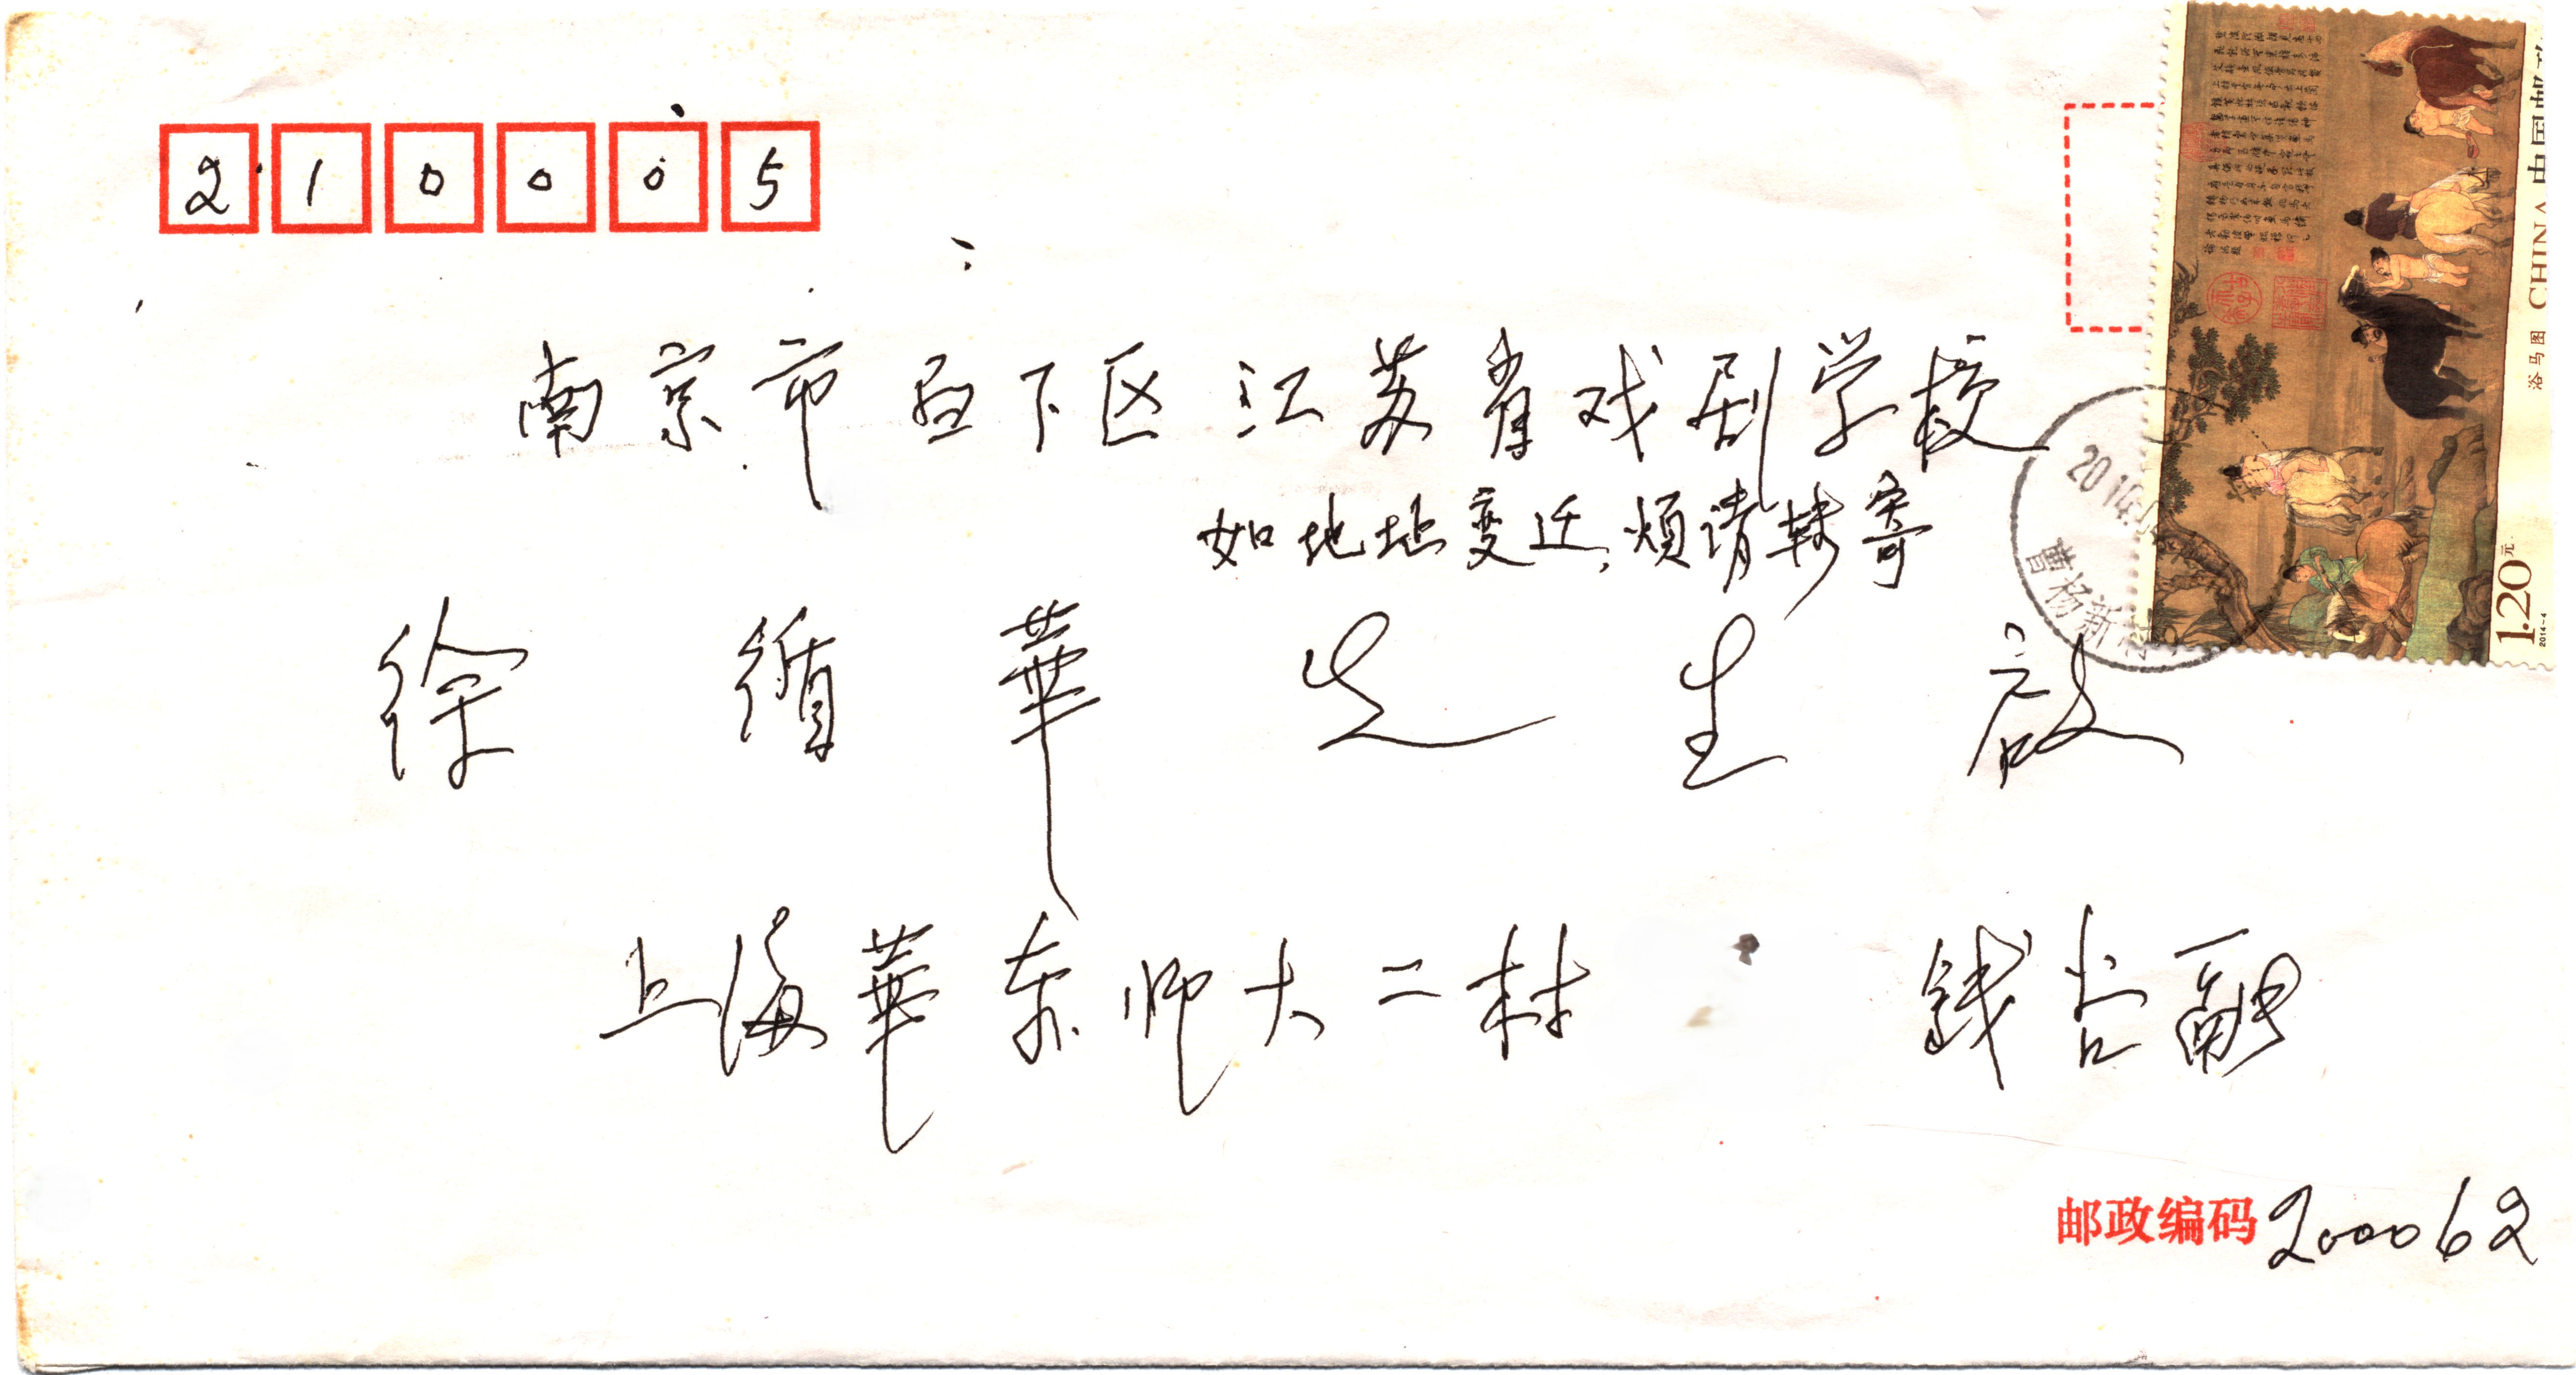 210005
中国邮政
CHINA
浴马图
1.20元
2014-4
南京市白下区江苏省戏剧学校
如地址变迁,烦请转寄
2014
曹杨新村
徐循華先生啟
上海華东师大二村 钱谷融
邮政编码 200062